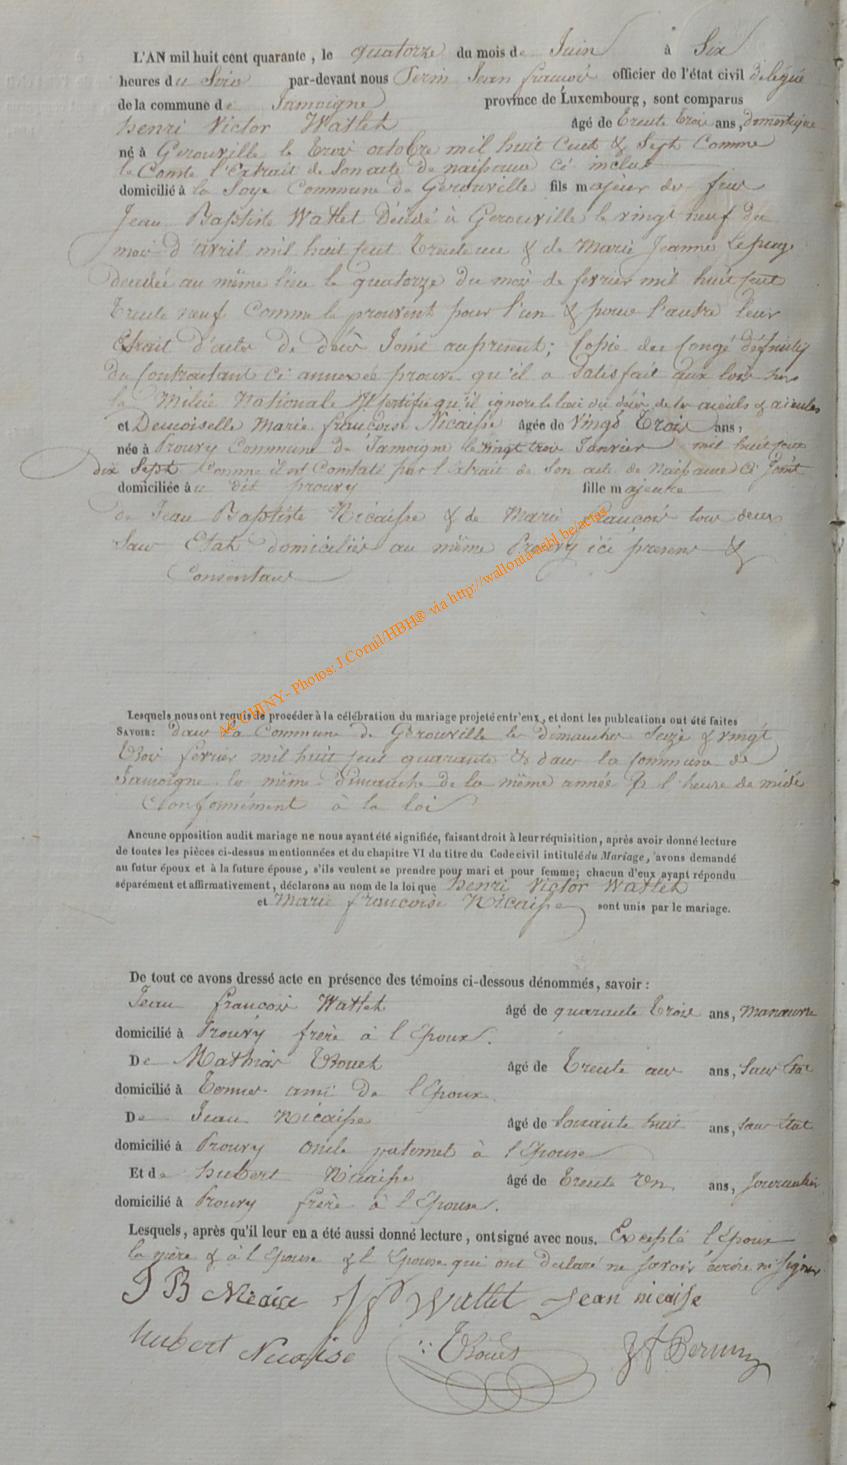 L'AN mil huit cent quarante, le quatorze du mois de Juin à Six
heures du Soir par-devant nous Jean françois officier de l'état civil délégué
de la commune de Jamoigne province de Luxembourg, sont comparus
henri Victor Watlet âgé de trente trois ans, domestique
né à Gerouville le trois octobre mil huit Cent & Sept Comme
le Comte l'Extrait de Son acte de naissance ci inclus
domicilié à la Soye Commune de Gerouville fils majeur de feu
Jean Baptiste Watlet décédé à Gerouville le vingt neuf du
mois d'avril mil huit cent trente un & de Marie Jeanne
décédée au même lieu le quatorze du mois de fevrier mil huit cent
trente neuf Comme le prouvent pour l'un & pour l'autre leur
Extrait d'actes de décès Joint au présent; Copie du Congé définitif
du Contractant Ci annexée prouve qu'il a Satisfait aux loix sur
la Milice Nationale & certifie qu'il ignore le lieu du décès de ses aieuls & aieules
et Demoiselle Marie françoise Nicaise âgée de vingt trois ans,
née à Prouvy Commune de Jamoigne le vingt trois Janvier mil huit cent
dix Sept Comme il est Constaté par l'extrait de Son acte de Naissance ci Joint
domiciliée au dit prouvy fille majeure
de Jean Baptiste Nicaise & de Marie françois tous deux
Sans Etat domiciliés au même Prouvy ici présens &
Consentans
AC CHINY - Photos: J.Cornil/HBH® via http://wallonia.nebl.be/actas
Lesquels nous ont requis de procéder à la célébration du mariage projeté entr'eux, et dont les publcations ont été faites
SAVOIR: dans la Commune de Gerouville les dimanches Seize & vingt
trois fevrier mil huit cent quarante & dans la Commune de
Jamoigne le même dimanche de la même année & l'heure de midi
Conformément à la loi
Aucune opposition audit mariage ne nous ayant été signifiée, faisant droit à leur réquisition, après avoir donné lecture
de toutes les pièces ci-dessus mentionnées et du chapitre VI du titre du Code civil intitulé du Mariage, avons demandé
au futur époux et à la future épouse, s'ils veulent se prendre pour mari et pour femme; chacun d'eux ayant répondu
séparément et affirmativement, déclarons au nom de la loi que henri Victor Watlet
et Marie françoise Nicaise sont unis par le mariage.
De tout ce avons dressé acte en présence des témoins ci-dessous dénommés, savoir:
Jean françois Watlet âgé de quarante trois ans, manœuvre
domicilié à Prouvy frère à l'Epoux.
De Mathias âgé de trente ans, Sans Etat
domicilié à ami de l'Epoux.
De Jean Nicaise âgé de Soixante huit ans, Sans état
domicilié à Prouvy oncle paternel à l'Epouse
Et de hubert Nicaise âgé de trente Un ans, Journalier
domicilié à Prouvy frère à l'Epouse.
Lesquels, après qu'il leur en a été aussi donné lecture, ont signé avec nous. Excepté l'Epoux
la mère à l'Epouse & l'Epouse qui ont déclaré ne savoir écrire ni Signer
J B Nicaise Watlet Jean nicaise
hubert Nicaise